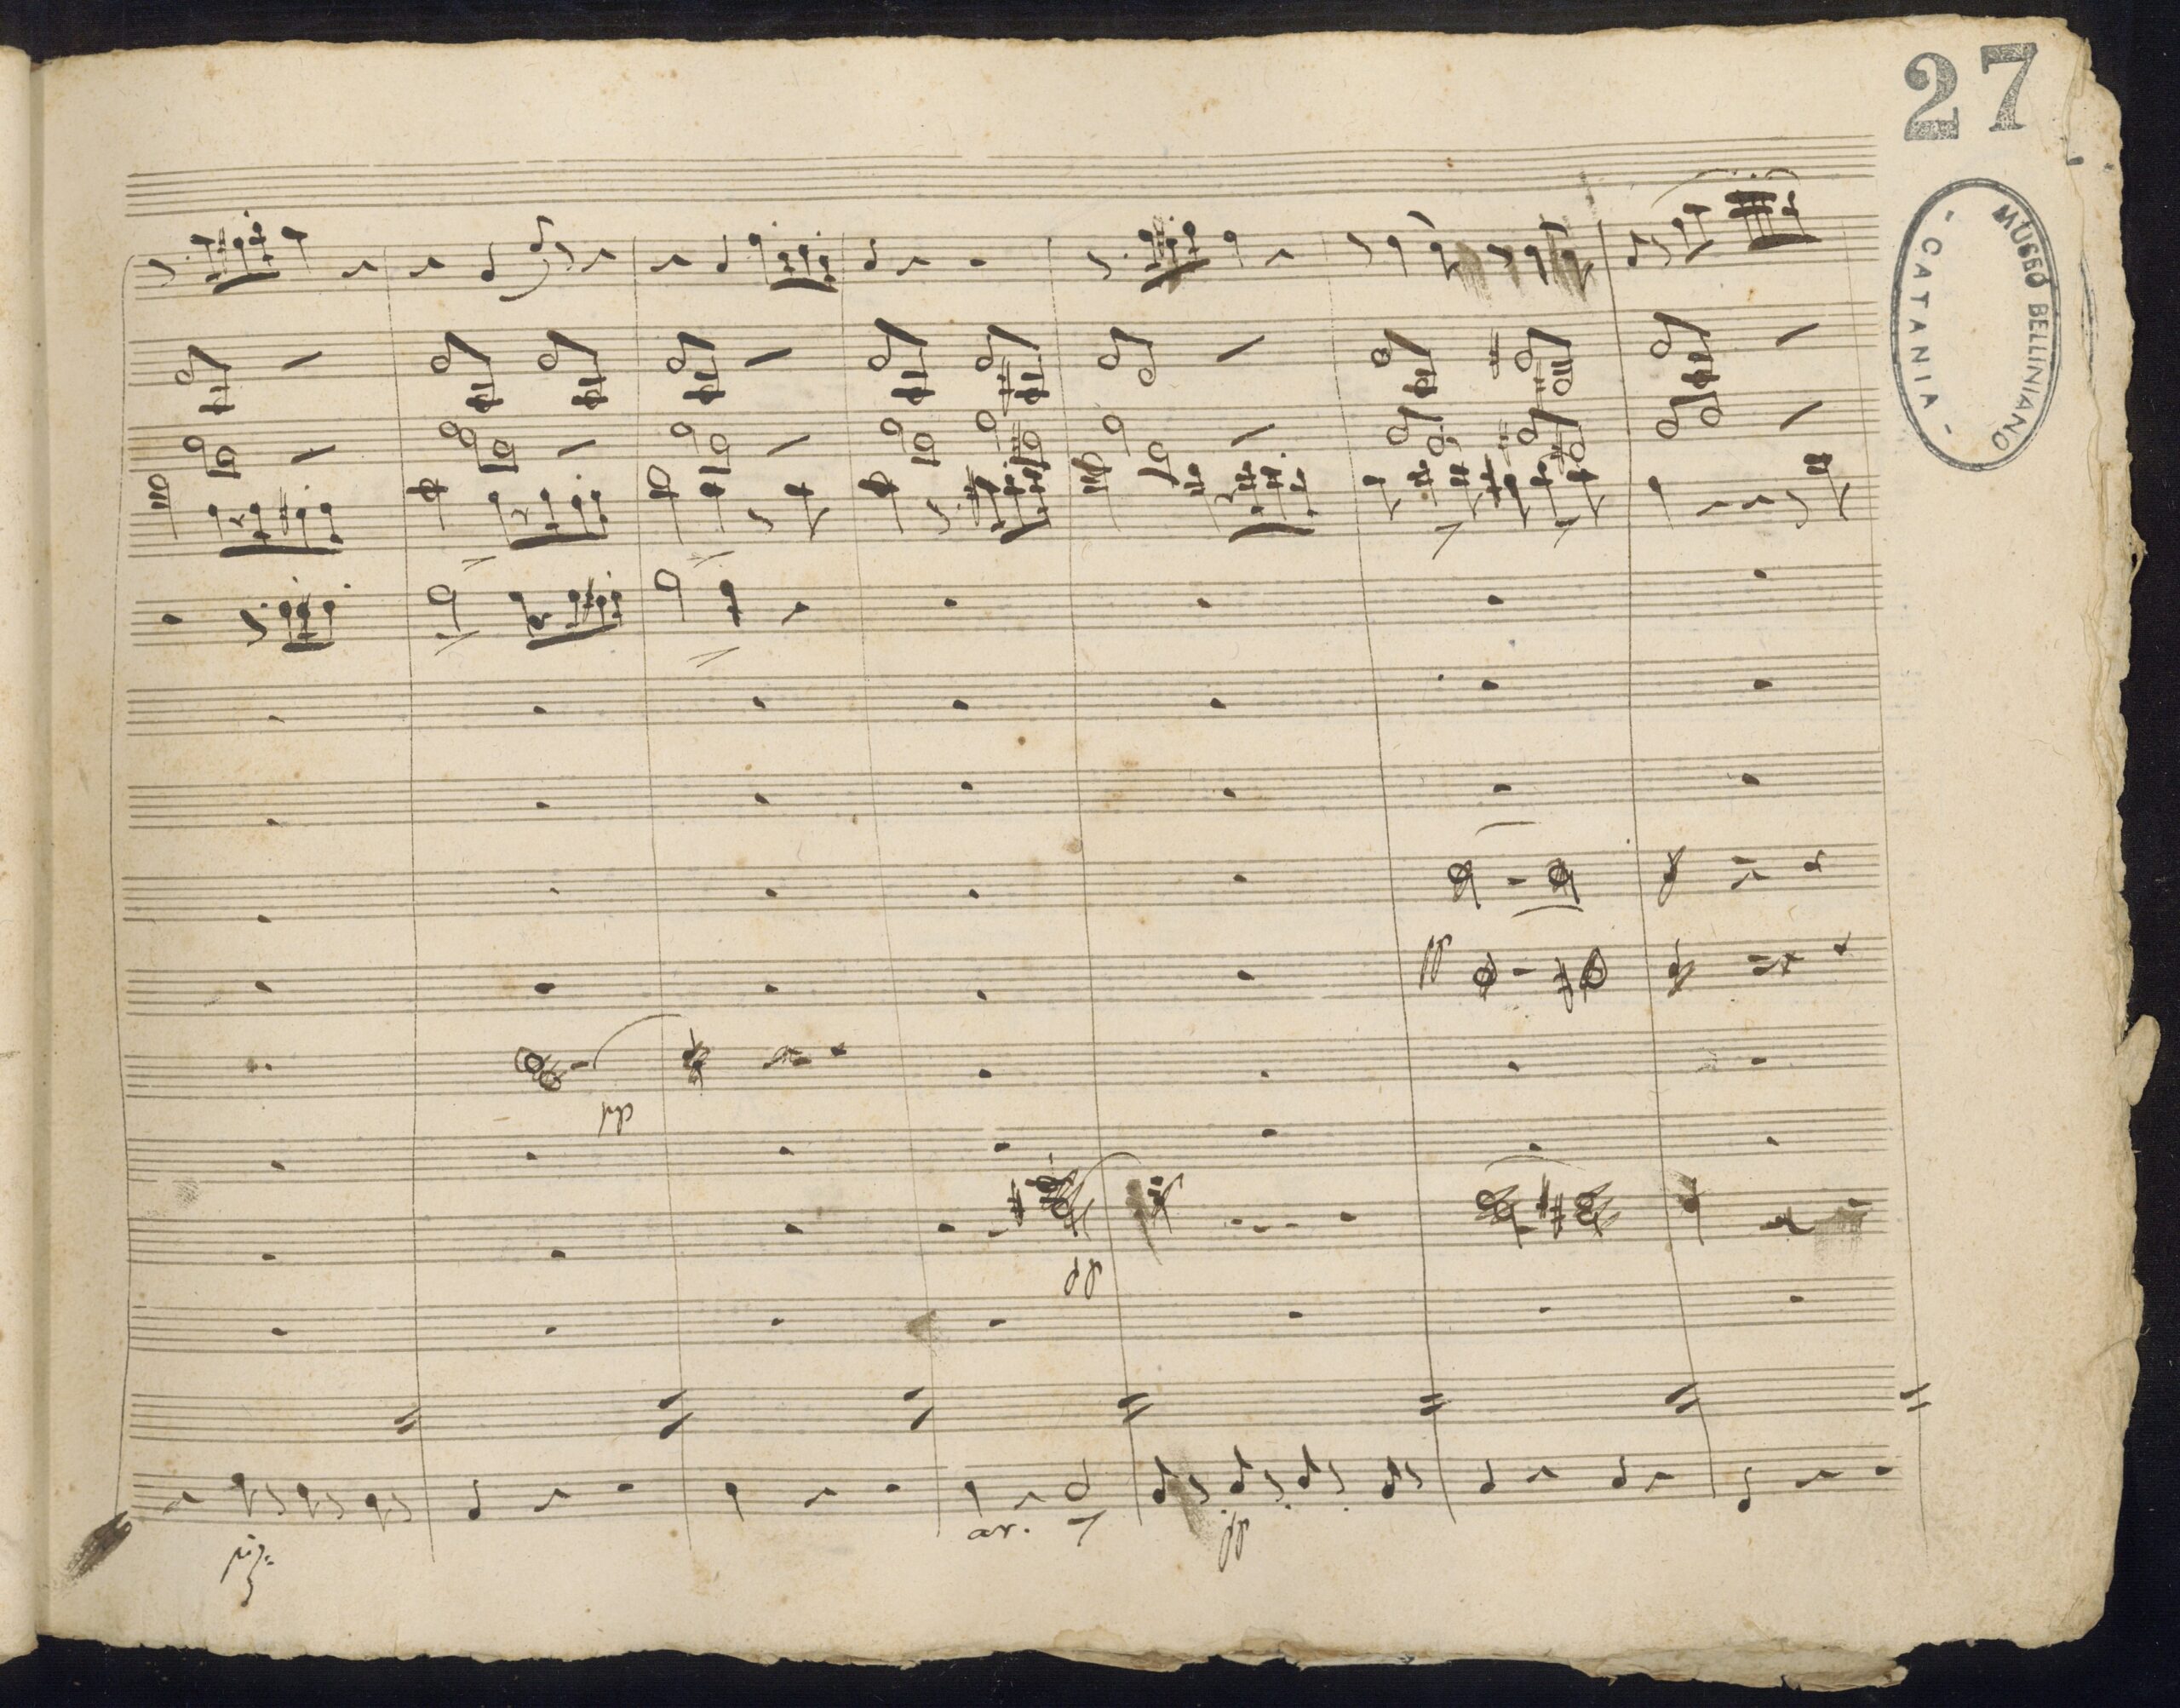 27
MUSEO BELLINIANO
- CATANIA -
pp
pp
pp
piz:
ar.
pp